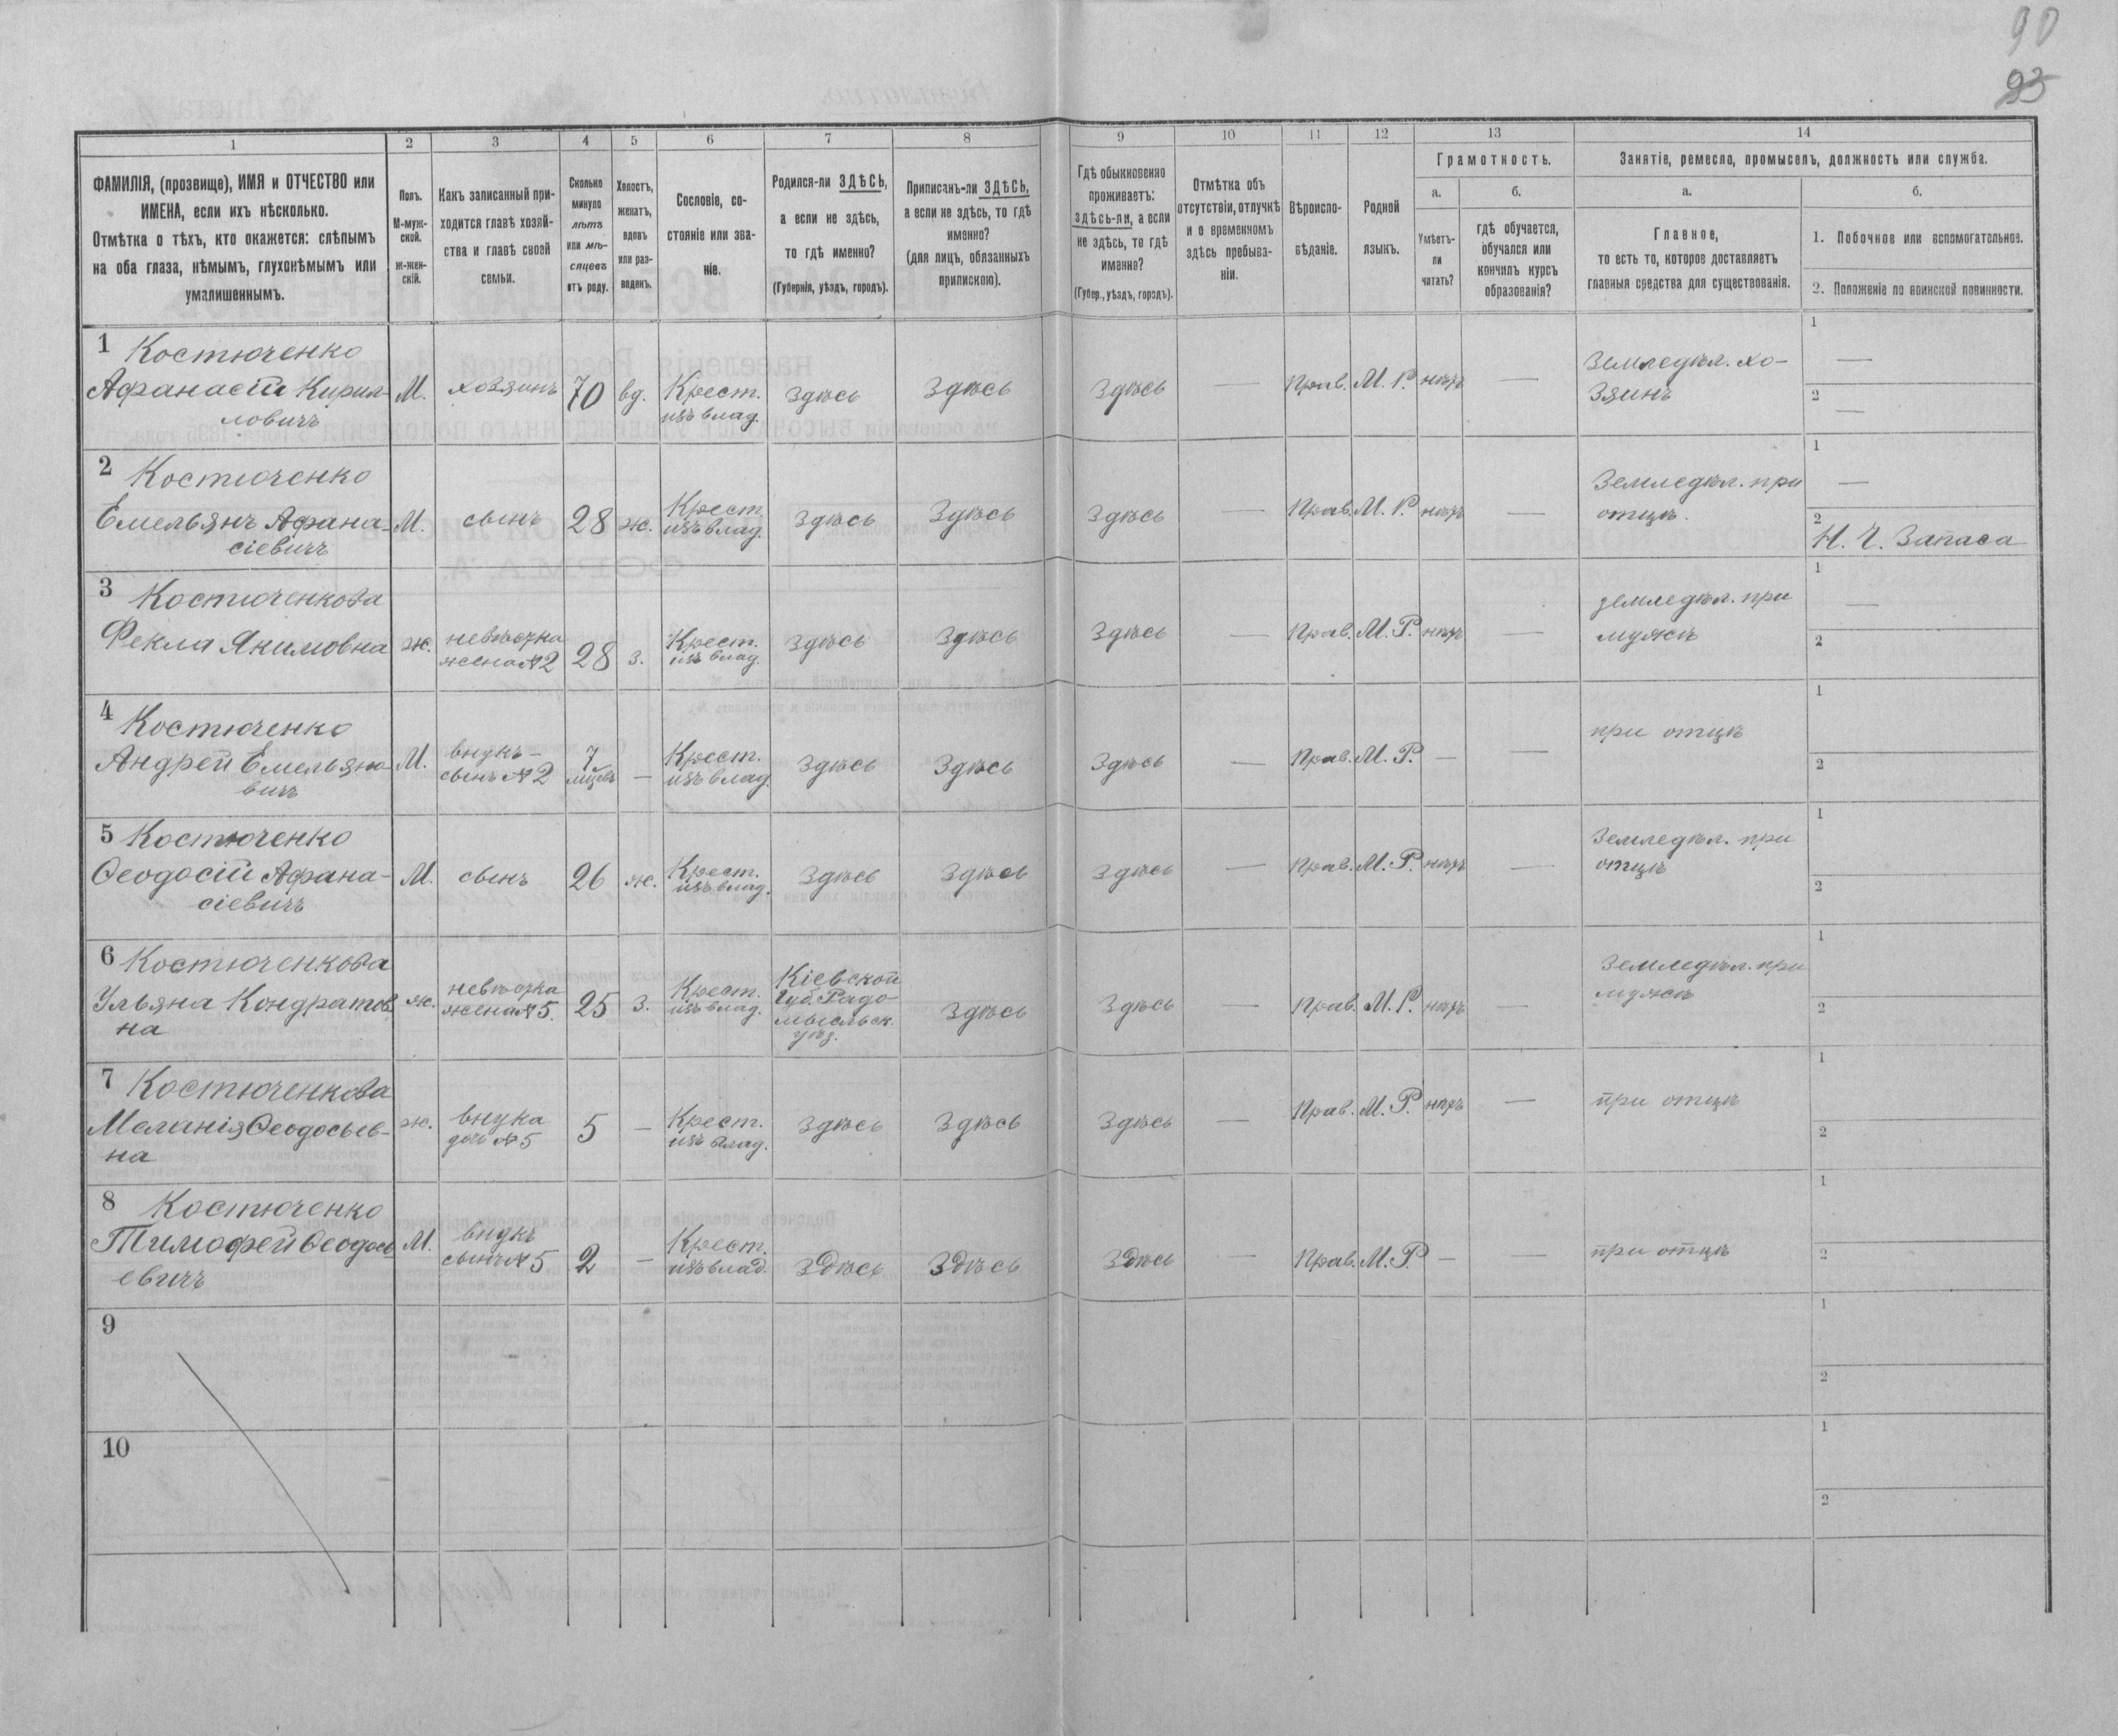 90
93
1
2
3
4
5
6
7
8
9
10
11
12
13
14
ФАМИЛІЯ, (прозвище), ИМЯ и ОТЧЕСТВО или
ИМЕНА, если ихъ нѣсколько.
Отмѣтка о тѣхъ, кто окажется: слѣпымъ
на оба глаза, нѣмымъ, глухонѣмымъ или
умалишеннымъ.
Полъ.
М-муж-
ской.
ж-жен-
скій.
Какъ записанный при-
ходится главѣ хозяй-
ства и главѣ своей
семьи.
Сколько
минуло
лѣтъ
или мѣ-
сяцевъ
отъ роду.
Холостъ,
женатъ,
вдовъ
или раз-
веденъ.
Сословіе, со-
стояніе или зва-
ніе.
Родился-ли ЗДѢСЬ,
а если не здѣсь,
то гдѣ именно?
(Губернія, уѣздъ, городъ).
Приписанъ-ли ЗДѢСЬ,
а если не здѣсь, то гдѣ
именно?
(для лицъ, обязанныхъ
припискою).
Гдѣ обыкновенно
проживаетъ:
здѣсь-ли, а если
не здѣсь, то гдѣ
именно?
(Губер., уѣздъ, городъ).
Отмѣтка объ
отсутствіи, отлучкѣ
и о временномъ
здѣсь пребыва-
ніи.
Вѣроиспо-
вѣданіе.
Родной
языкъ.
Грамотность.
а.
б.
Умѣетъ-
ли
читать?
гдѣ обучается,
обучался или
кончилъ курсъ
образованія?
Занятіе, ремесло, промыселъ, должность или служба.
а.
б.
Главное,
то есть то, которое доставляетъ
главныя средства для существованія.
1. Побочное или вспомогательное.
2. Положеніе по воинской повинности.
1 Костюченко
Афанасій Кирил-
ловичъ
М.
хозяинъ
70
вд.
Крест.
изъ влад.
здѣсь
здѣсь
здѣсь
—
Прав.
М. Р.
нѣтъ
—
Земледѣл. хо-
зяинъ
1
—
2
—
2 Костюченко
Емельянъ Афана-
сіевичъ
М.
сынъ
28
ж.
Крест.
изъ влад.
здѣсь
здѣсь
здѣсь
—
Прав.
М. Р.
нѣтъ
—
Земледѣл. при
отцѣ.
1
—
2
Н. Ч. Запаса
3 Костюченкова
Фекла Якимовна
ж.
невѣстка
жена №2
28
з.
Крест.
изъ влад.
здѣсь
здѣсь
здѣсь
—
Прав.
М. Р.
нѣтъ
—
земледѣл. при
мужѣ
1
—
2
4 Костюченко
Андрей Емельяно-
вичъ
М.
внукъ-
сынъ №2
7
мѣсяцевъ
—
Крест.
изъ влад.
здѣсь
здѣсь
здѣсь
—
Прав.
М. Р.
—
—
при отцѣ
1
2
5 Костюченко
Ѳеодосій Афана-
сіевичъ
М.
сынъ
26
ж.
Крест.
изъ влад.
здѣсь
здѣсь
здѣсь
—
Прав.
М. Р.
нѣтъ
—
Земледѣл. при
отцѣ
1
2
6 Костюченкова
Ульяна Кондратов-
на
ж.
невѣстка
жена №5.
25
з.
Крест.
изъ влад.
Кіевской
Губ. Радо-
мысльск.
уѣз.
здѣсь
здѣсь
—
Прав.
М. Р.
нѣтъ
—
Земледѣл. при
мужѣ
1
2
7 Костюченкова
Меланія Ѳеодосьев-
на
ж.
внука
дочь №5
5
—
Крест.
изъ влад.
здѣсь
здѣсь
здѣсь
—
Прав.
М. Р.
нѣтъ
—
при отцѣ
1
2
8 Костюченко
Тимофей Ѳеодось-
евичъ
М.
внукъ
сынъ №5
2
—
Крест.
изъ влад.
здѣсь
здѣсь
здѣсь
—
Прав.
М. Р.
—
—
при отцѣ
1
2
9
1
2
10
1
2